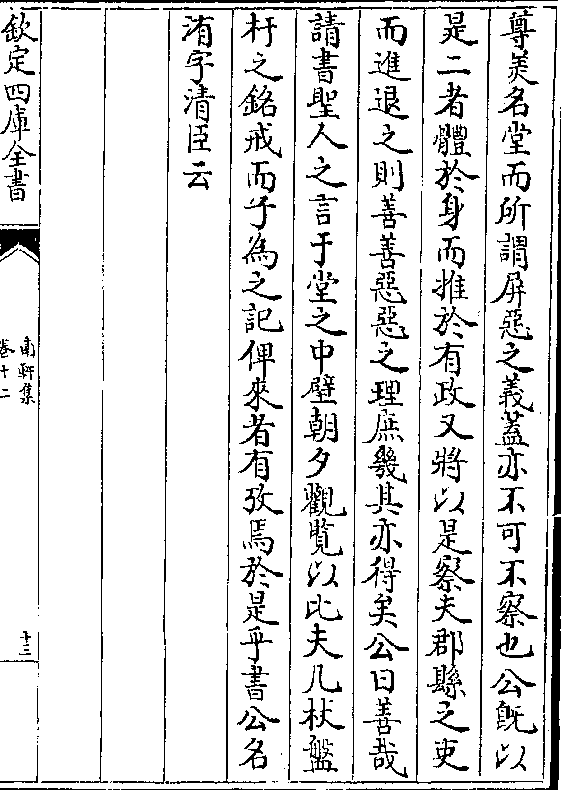 尊美名堂而所謂屏惡之義蓋亦不可不察也公既以
是二者體於身而推於有政又將以是察夫郡縣之吏
而進退之則善善惡惡之理庶幾其亦得矣公曰善哉
請書聖人之言于堂之中壁朝夕觀覽以比夫几杖盤
杅之銘戒而予為之記俾來者有攷焉於是乎書公名
洧字清臣云
欽定四庫全書
南軒集
卷十二
十三